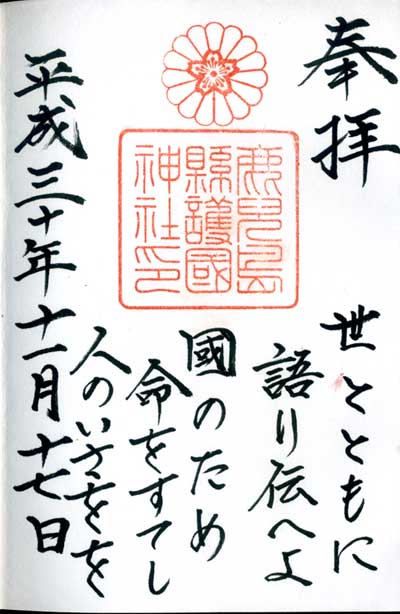 奉拝
鹿児島
縣護國
神社印
世とともに
語り伝へよ
國のため
命をすてし
人のいさををを
平成三十年十一月十七日